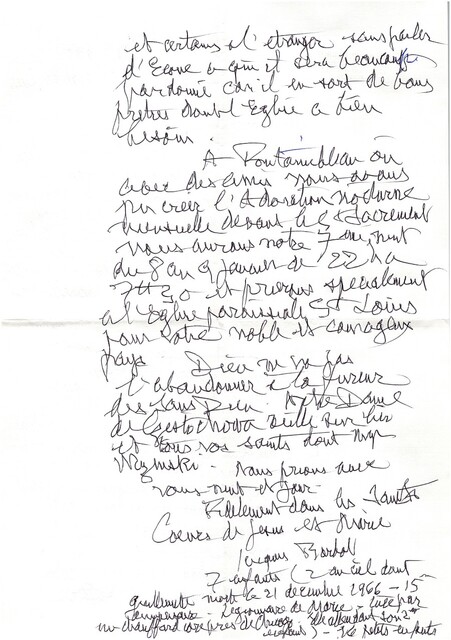 et certains à l'étranger sans parler
d'Econe à qui il sera beaucoup
pardonné car il en sort de bons
prêtres dont l'Eglise a bien
besoin.
A Fontainebleau où
avec des amis nous avons
pu créer l'Adoration nocturne
mensuelle devant le St Sacrement
nous aurons notre 7 ème nuit
du 8 au 9 janvier de 22 h à
7H30 et prierons spécialement
à l'Eglise paroissiale St Louis
pour votre noble et courageux
pays. Dieu ne va pas
l'abandonner à la fureur
des sans Dieu. Notre Dame
de Czestochowa veille sur lui
et tous vos saints dont Mgr
Nous prions avec
vous nuit et jour.
Fidèlement dans les Saints
Coeurs de Jésus et Marie
Jacques
7 enfants (2 au ciel dont
morte le 21 décembre 1966 - 15
Légionnaire de Marie - tuée par
un chauffard près de
petits enfants